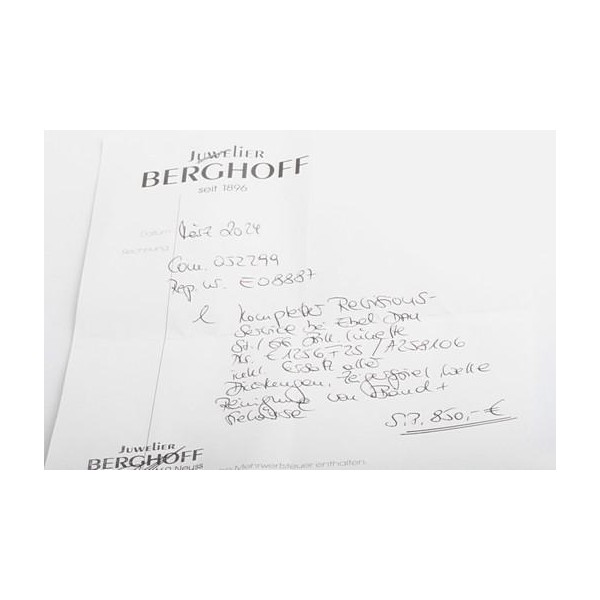 Juwelier
BERGHOFF
seit 1896
Datum März 2024
Rechnung
Com. 052299
Rep. Nr. E08887
1 Kompletter Revisions-
Service bei Ebel DAU
St./GG Brill. Lünette
Nr. E1256F25 / A258106
inkl. Ersatz aller
Dichtungen, Zeigerspiel, Welle
Reinigung von Band +
Gehäuse
S.P. 850,- €
Juwelier
BERGHOFF
Neuss
Mehrwertsteuer enthalten.